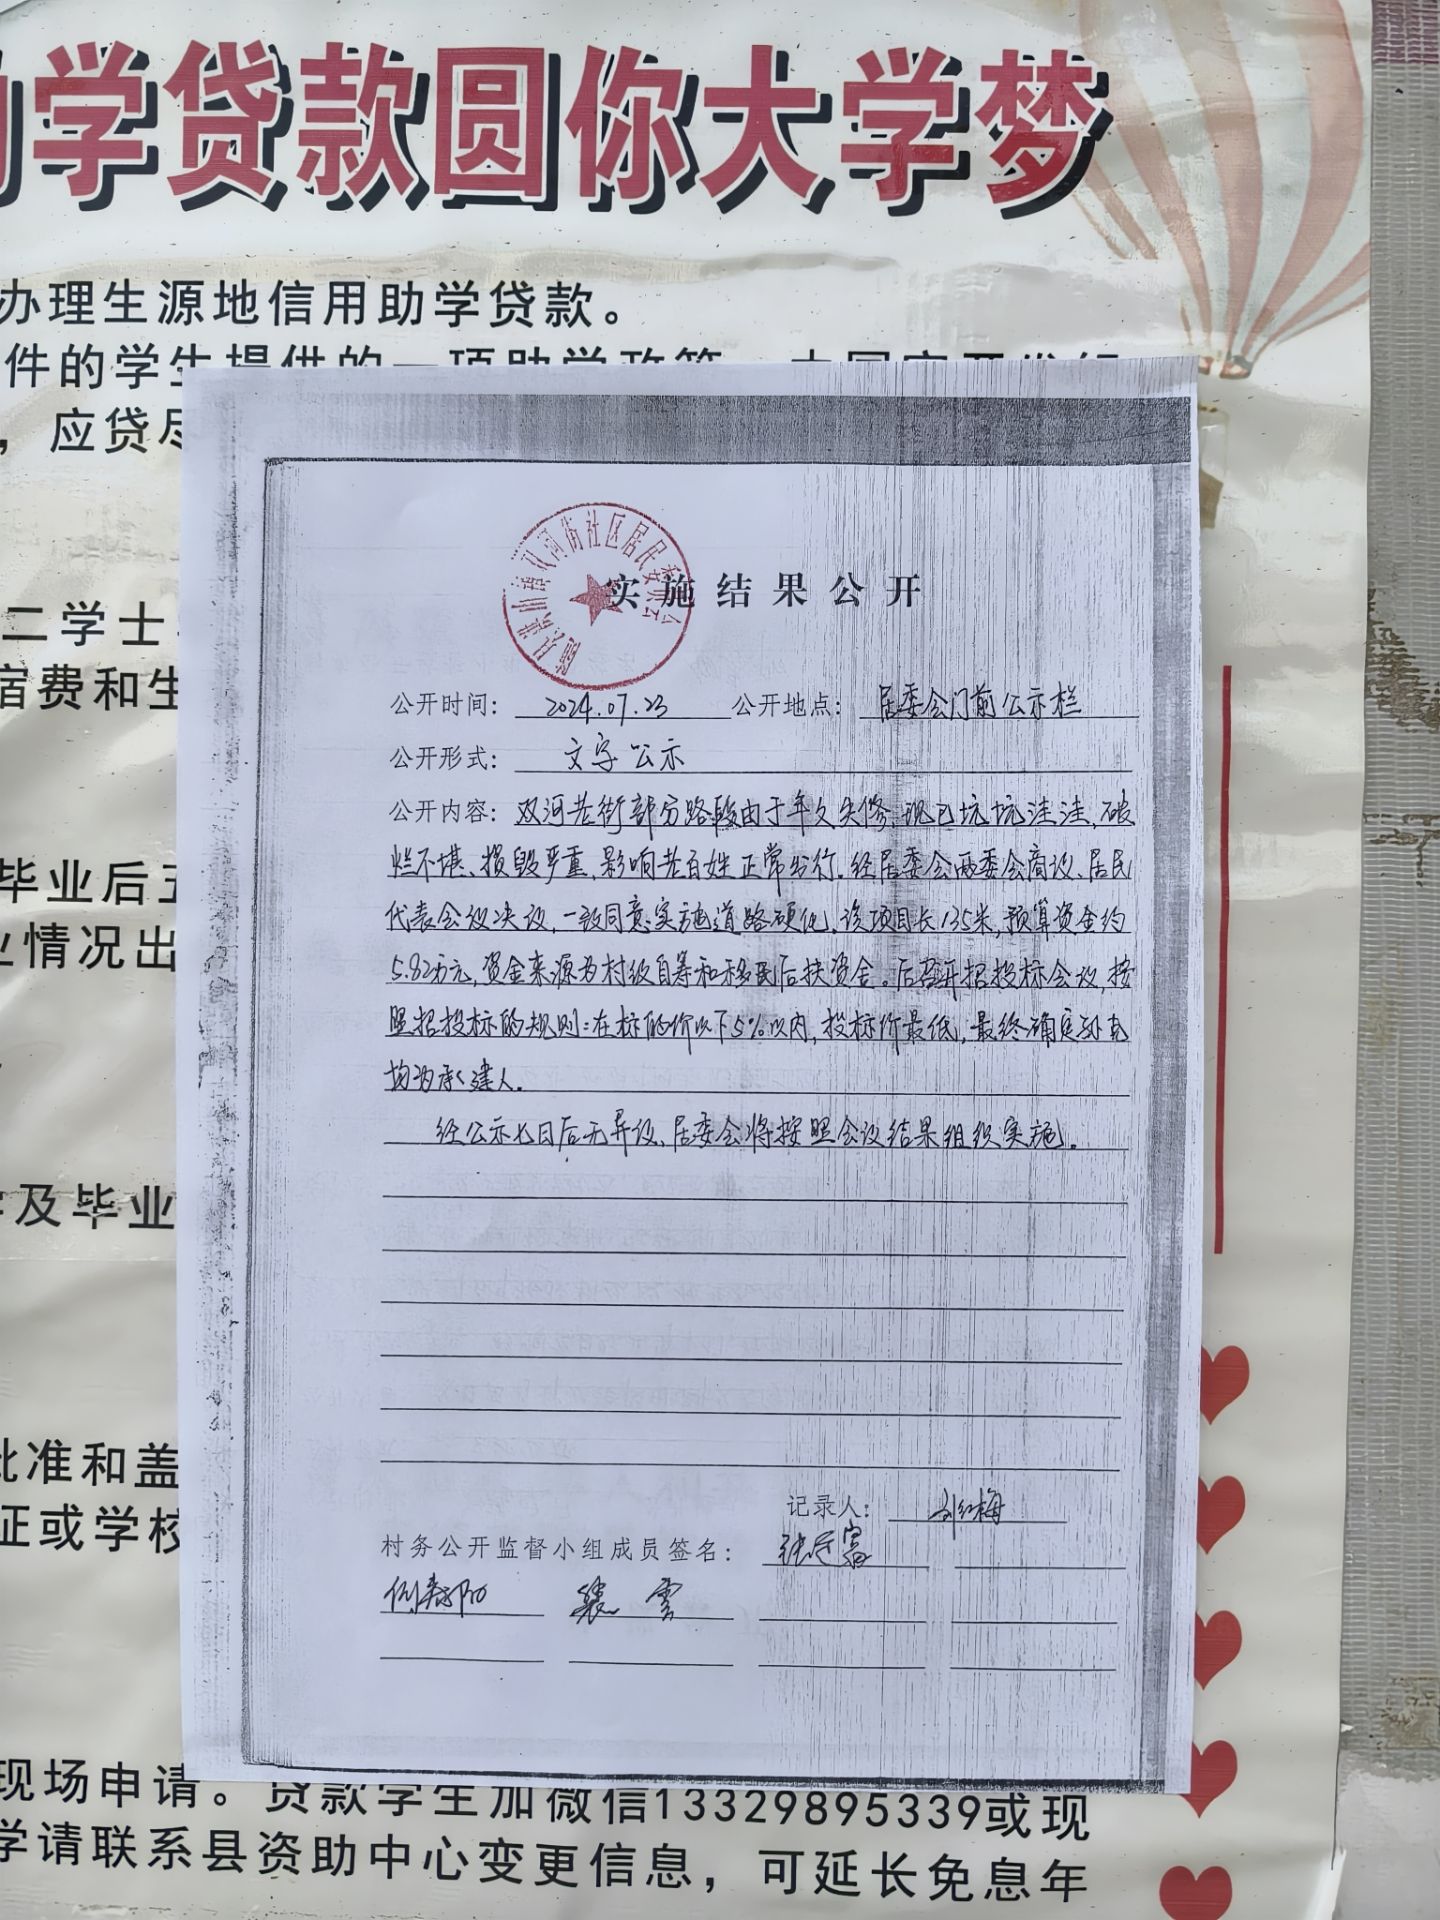 学贷款圆你大学梦
办理生源地信用助学贷款。
件的学生提供的一项助学政策
，应贷尽
实施结果公开
公开时间：2024.07.23 公开地点：居委会门前公示栏
公开形式：文字公示
公开内容：双河老街部分路段由于年久失修，现已坑坑洼洼，破
烂不堪、损毁严重，影响老百姓正常出行。经居委会两委会商议、居民
代表会议决议，一致同意：实施道路硬化，该项目长135米，预算资金约
5.82万元，资金来源为村级自筹和移民后扶资金。后召开招投标会议，按
照招投标的规则：在标的价以下5%以内，投标价最低，最终确定孙克
均为承建人。
经公示七日后无异议，居委会将按照会议结果组织实施。
记录人：刘红梅
村务公开监督小组成员签名：
二学士
宿费和生
毕业后五
业情况出
及毕业
批准和盖
证或学校
现场申请。贷款学生加微信13329895339或现
学请联系县资助中心变更信息，可延长免息年